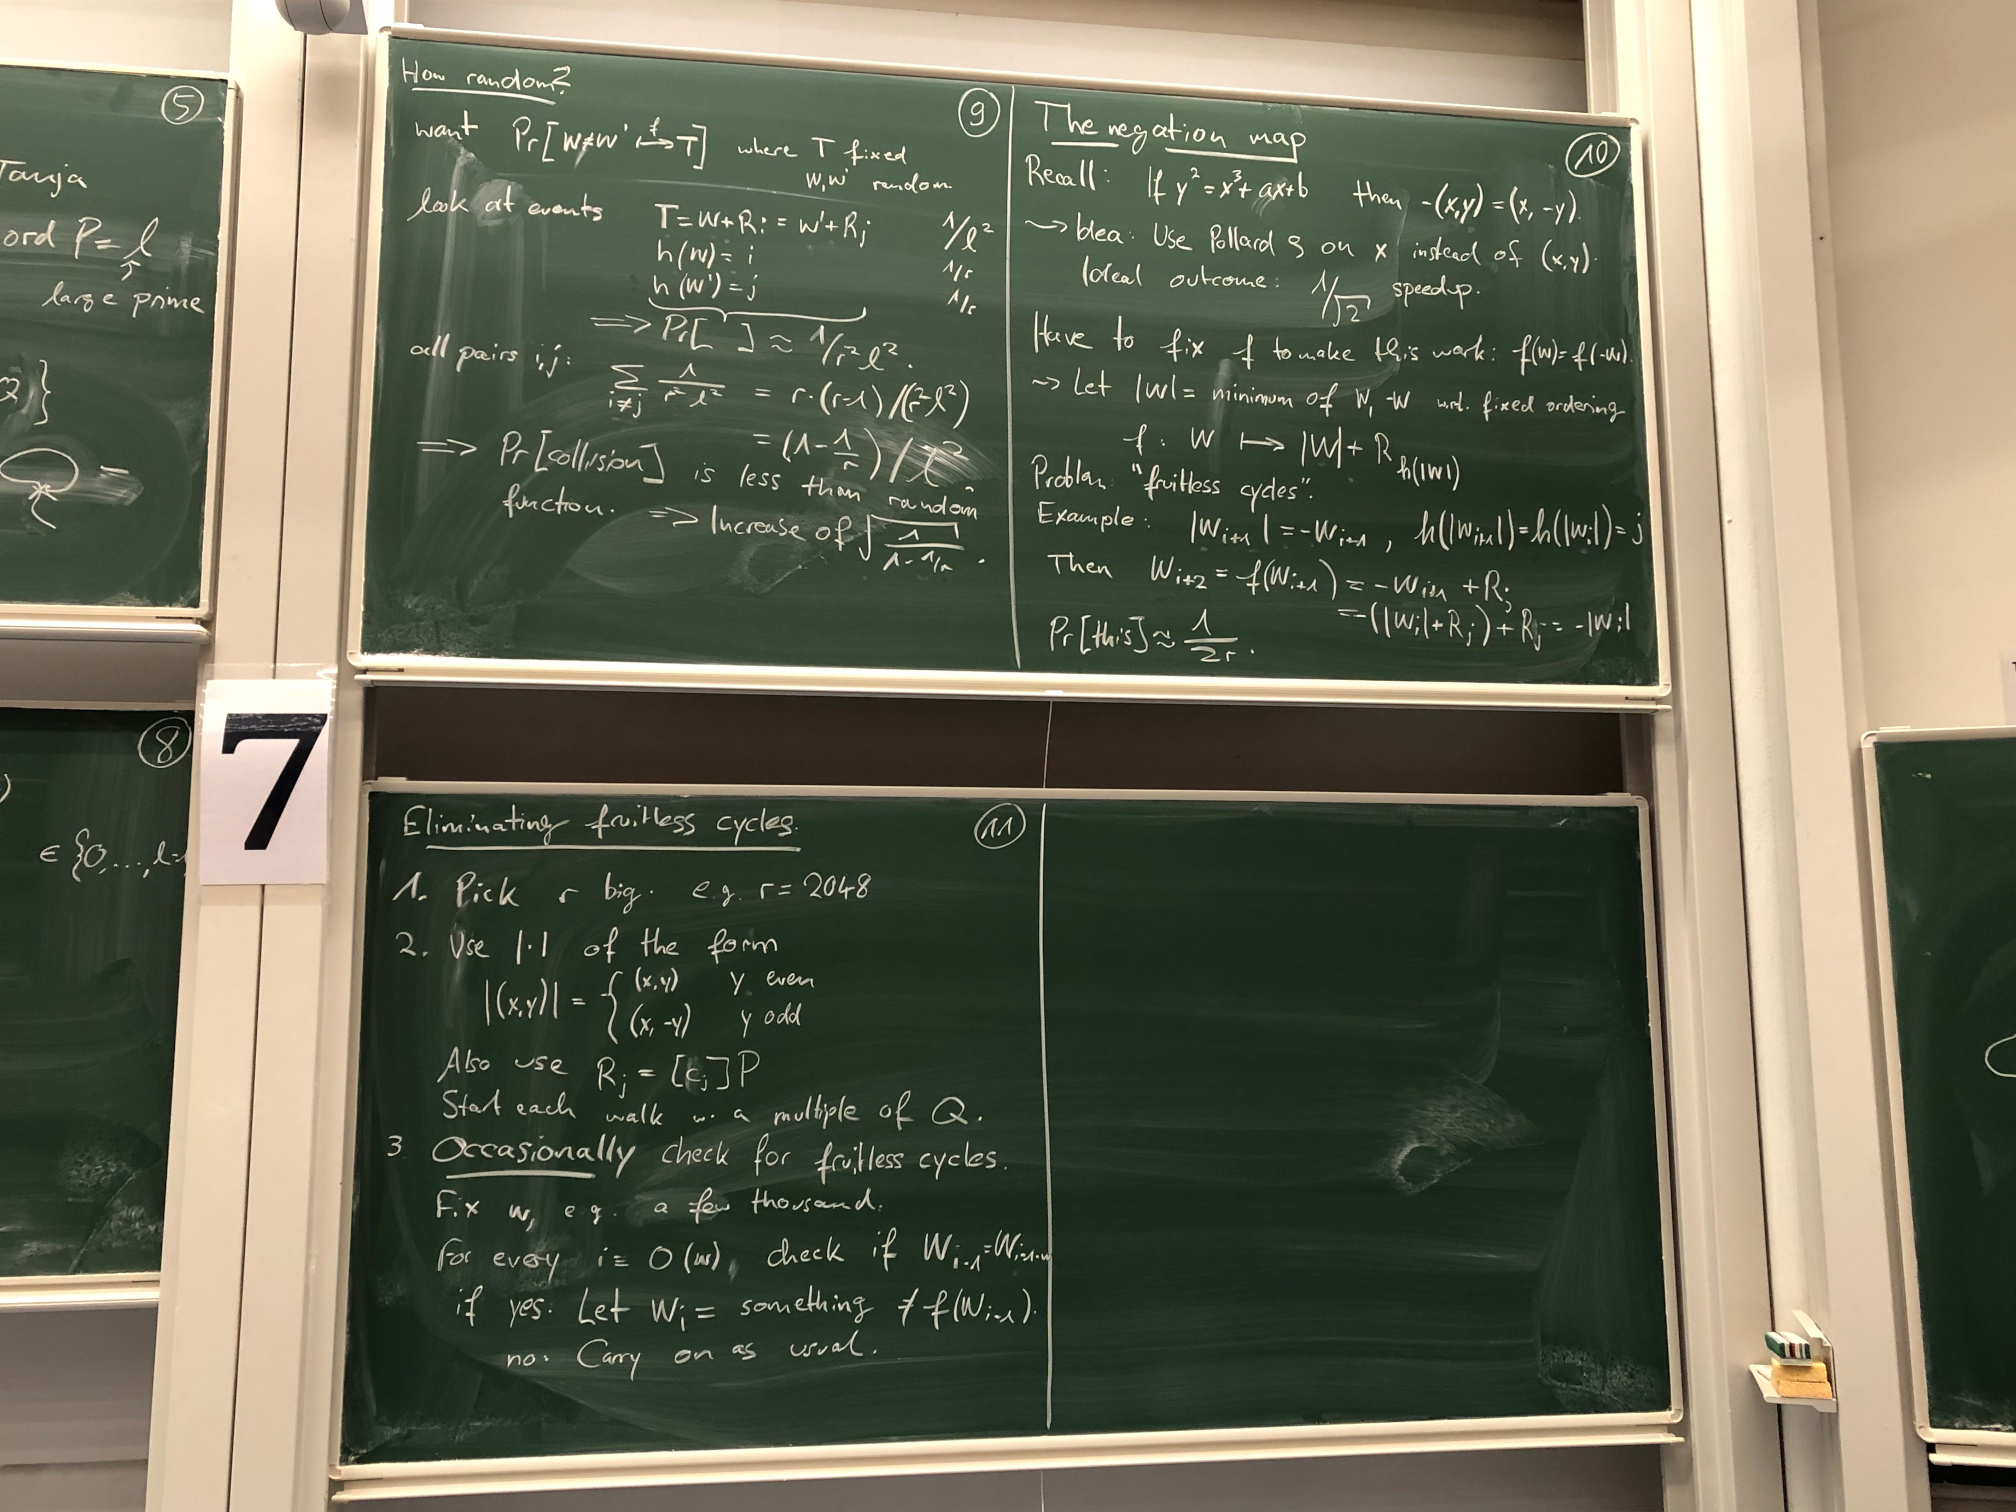 5
Tanja
ord P = l
large prime
2)}
8
)
∈ {0,...,l-1
7
How random?
9
want Pr[W≠W' ↦f T] where T fixed
W,W' random.
look at events T=W+Ri = W'+Rj 1/l²
h(W) = i 1/r
h(W') = j 1/r
⟹ Pr[ ] ≈ 1/r²l².
all pairs i,j: ∑i≠j 1/r²l² = r·(r-1)/(r²l²)
= (1-1/r)/l²
⟹ Pr[collision] is less than random
function. ⟹ Increase of √(1/(1-1/r)).
The negation map
10
Recall: If y²=x³+ax+b then -(x,y)=(x,-y).
⇝ Idea: Use Pollard ρ on x instead of (x,y).
Ideal outcome: 1/√2 speedup.
Have to fix f to make this work: f(W)=f(-W).
⇝ Let |W| = minimum of W, -W w.r.t. fixed ordering
f: W ↦ |W|+R_h(|W|)
Problem: "fruitless cycles".
Example: |Wi+1| = -Wi+1, h(|Wi+1|)=h(|Wi|)=j
Then Wi+2 = f(Wi+1) = -Wi+1 + Rj
=-(|Wi|+Rj)+Rj = -|Wi|
Pr[this] ≈ 1/2r.
Eliminating fruitless cycles.
11
1. Pick r big. e.g. r=2048
2. Use |·| of the form
|(x,y)| = { (x,y) y even
(x,-y) y odd
Also use Rj = [cj]P
Start each walk w. a multiple of Q.
3. Occasionally check for fruitless cycles.
Fix w, e.g. a few thousand.
For every i ≡ 0 (w), check if Wi-1=Wi-1-w
if yes: Let Wi = something ≠ f(Wi-1).
no: Carry on as usual.